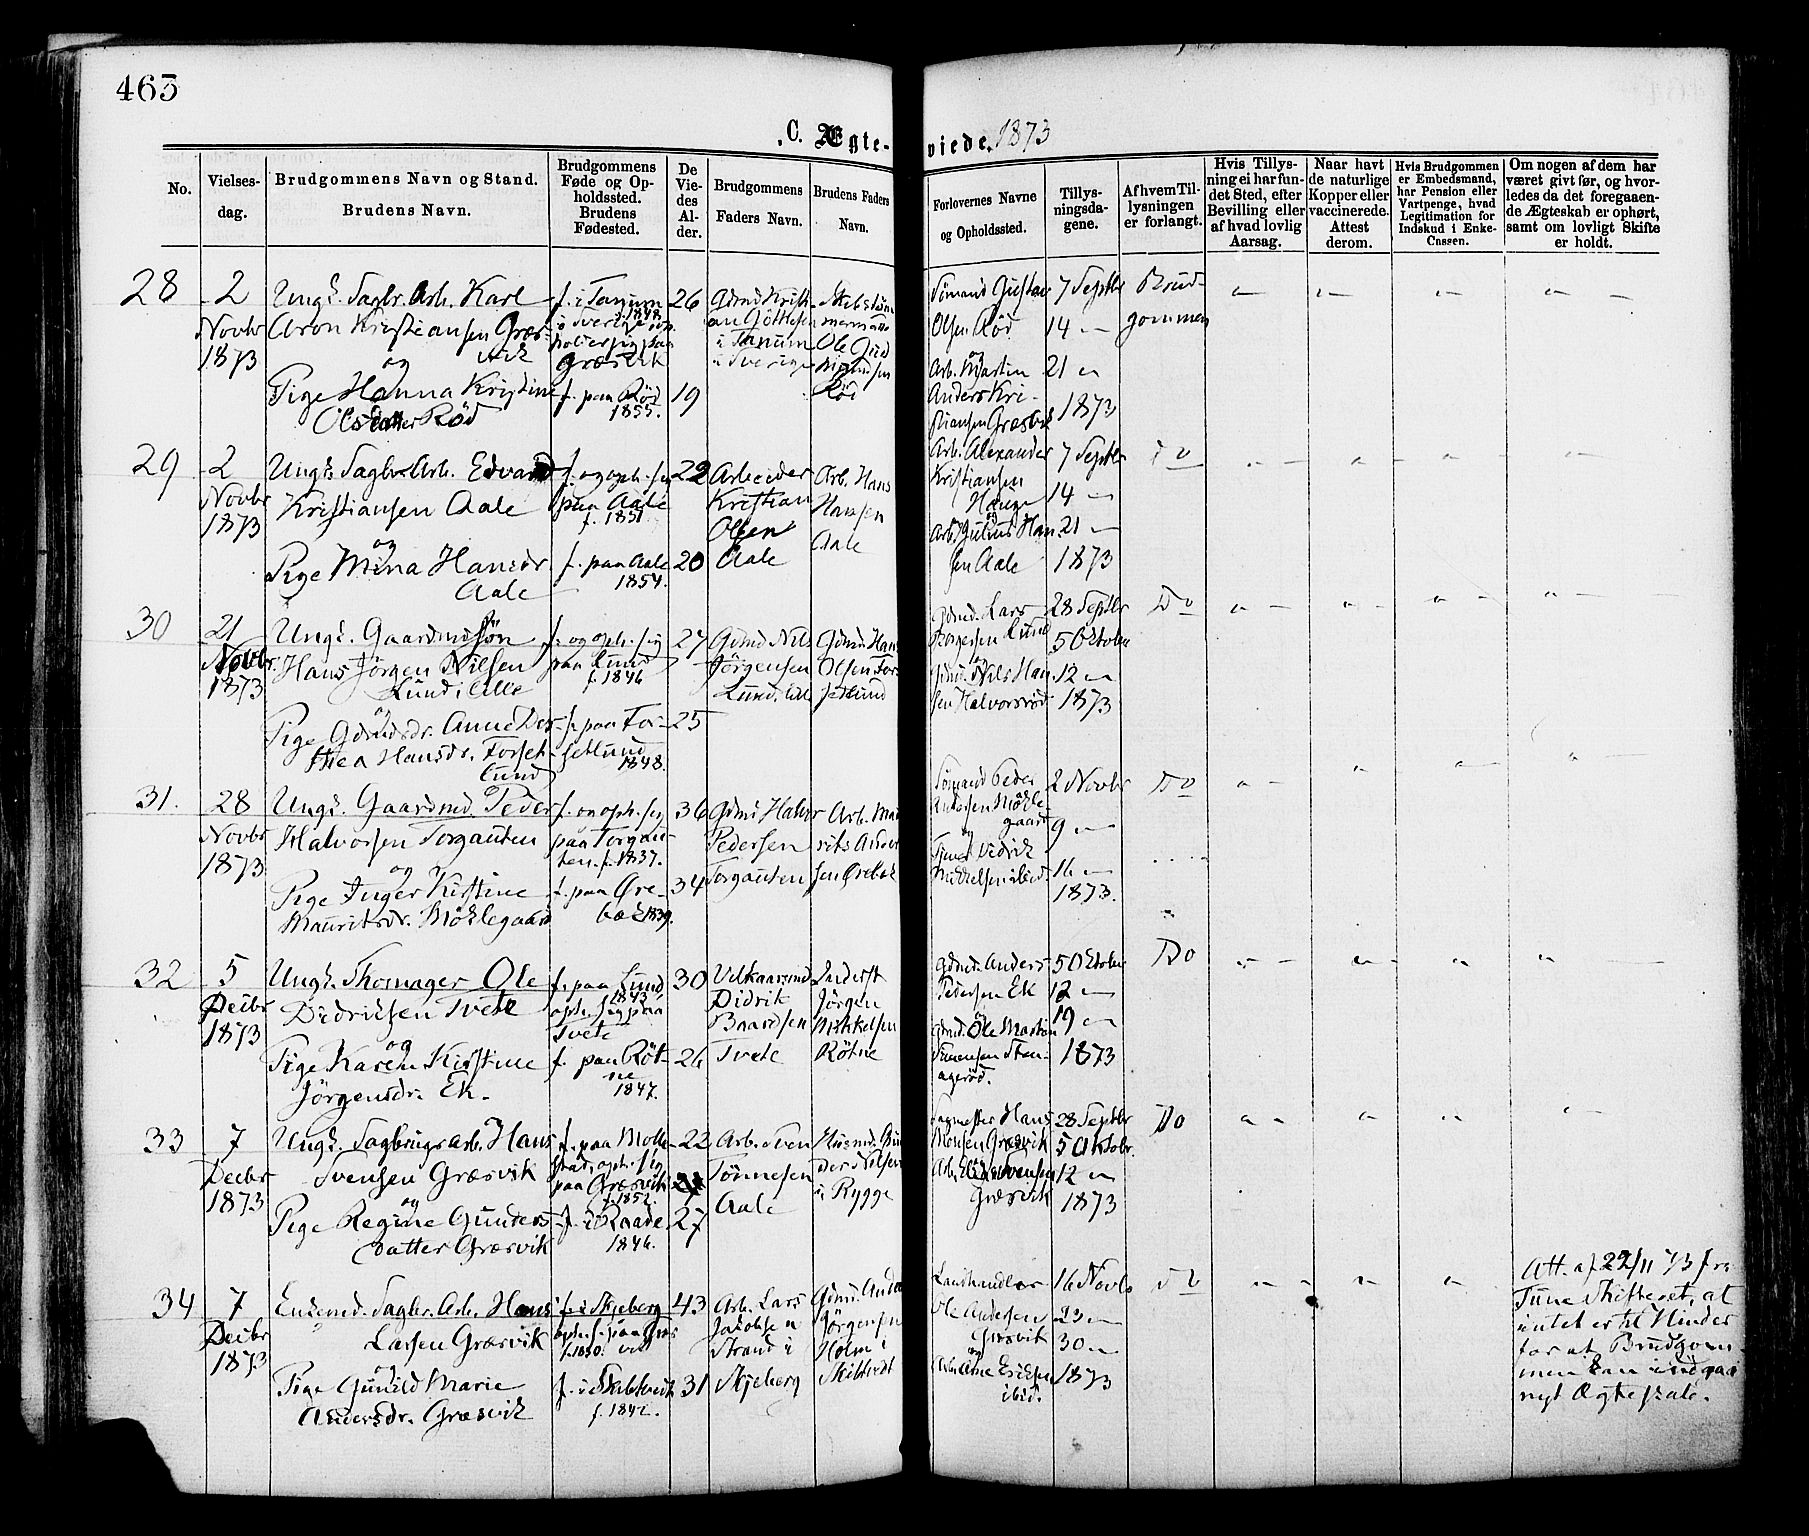 463
C. Ægte-viede. 1873
No.
Vielses-dag.
Brudgommens Navn og Stand.
Brudens Navn.
Brudgommens Føde og Opholdssted.
Brudens Fødested.
De Viedes Alder.
Brudgommens Faders Navn.
Brudens Faders Navn.
Forlovernes Navne og Opholdssted.
Tillysningsdagene.
Af hvem Tillysningen er forlangt.
Hvis Tillysning ei har fundet Sted, efter Bevilling eller af hvad lovlig Aarsag.
Naar havt de naturlige Kopper eller vaccinerede. Attest derom.
Hvis Brudgommen er Embedsmand, har Pension eller Vartpenge, hvad Legitimation for Indskud i Enke-Cassen.
Om nogen af dem har været givt før, og hvorledes da det foregaaende Ægteskab er ophørt, samt om lovligt Skifte er holdt.
28
2 Novbr 1873
Ungk. Sagbr. Arb. Karl
Aron Kristiansen Græsvik
og
Pige Hanna Kristine
Olsdatter Rød
f. i Tanum i Sverige 1848
Græsvik
f. paa Rød 1855.
26
19
i Tanum
i Sverige
Rød
Sømand Gustav
Olsen Rød
og
Arb. Martin
Anders Kristiansen Græsvik
7 Septbr
14 "
21 "
1873
Brudgommen
29
2 Novbr 1873
Ungk. Sagbr. Arb. Edvard
Kristiansen Aale
og
Pige Mina Hansdr
Aale
f. og oph. sig
paa Aale
f. 1851.
f. paa Aale
1854.
22
20
Arbeider
Kristian
Olsen
Aale
Arb. Hans
Hansen
Aale
Arb. Alexander
Kristiansen
Hauge
og
Arb. Julius Hansen Aale
7 Septbr
14 "
21 "
1873
Do
30
21 Novbr. 1873
Ungk. Gaardmdsøn
Hans Jørgen Nilsen
Lund i lille
og
Pige Gdmdsdr. Anne Dorthea Hansdr. Torsetlund
f. og oph. sig
paa Lund
f. 1846
f. paa Torsetlund
1848.
27
25
Gdmd Nils
Jørgensen
Lund, lill
Gdmd Hans
Olsen Torsetlund
Gdmd. Lars
Borgersen Lund
og
Gdmd. Nils Hansen Halvorsrød
28 Septbr
5 Oktober
12 "
1873
Do
31.
28 Novbr 1873
Ungk. Gaardmd. Peder
Halvorsen Torgauten
og
Pige Inger Kirstine
Mauritsdr. Møklegaard
f. og oph. sig
paa Torgauten. f. 1837.
f. paa Ørebæk 1839.
36
34
Gdmd Halvor
Pedersen
Torgauten
Arb. Maurits Andersen Ørebæk
Sømand Peder
Andersen Møklegaard
og
2 Novbr
9 "
16 "
1873.
Do
32
5 Decbr 1873
Ungk. Skomager Ole
Didriksen Tvete
og
Pige Karen Kirstine
Jørgensdr. Ek.
f. paa Lund
1843
oph. sig paa
Tvete
f. paa Røtne
1847.
30
26
Didrik
Baardsen
Tvete
Inderst
Jørgen
Mikkelsen
Røtne
Gdmd. Anders
Pedersen Ek
og
Gdmd. Ole Martin
5 Oktober
12 "
19 "
1873
Do
33
7 Decbr 1873
Ungk. Sagbrugsarb. Hans
Svensen Græsvik
og
Pige Regine Gundersdatter Græsvik
oph. sig
paa Græsvik
f. 1852.
f. i Raade
1846.
22
27
Arb. Sven
Tønnesen
Aale
Husmd. Gunder Nilsen
i Rygge
Sagmester Hans
Monsen Græsvik
Græsvik
28 Septbr
5 Oktobr.
12 "
1873
Do
34
7 Decbr 1873
Enkemd. Sagbr. Arb. Hans
Larsen Græsvik
og
Pige Gunild Marie
Andersdr. Græsvik
f. i Skjeberg
oph. s. paa Græsvik
f. 1830.
f. i Skibtvedt
f. 1842.
43
31
Arb. Lars
Jakobsen
Strand i
Skjeberg
Gdmd. Anders
Jørgensen
Holm i
Skibtvedt
Landhandler
Ole Andersen
Græsvik
og
Arne Ericksen
ibid.
16 Novbr
23 "
30 "
1873
Do
Att. af 22/11 73 fra
Tune Skifteret, at
intet er til Hinder
for at Brudgommen kan indgaa
nyt Ægteskab.